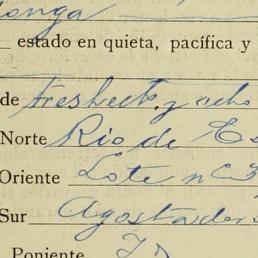 onga
estado en quieta, pacífica y
de tres hect. y ocho
Norte Rio de
Oriente Lote nº 3
Sur Agostader
Poniente